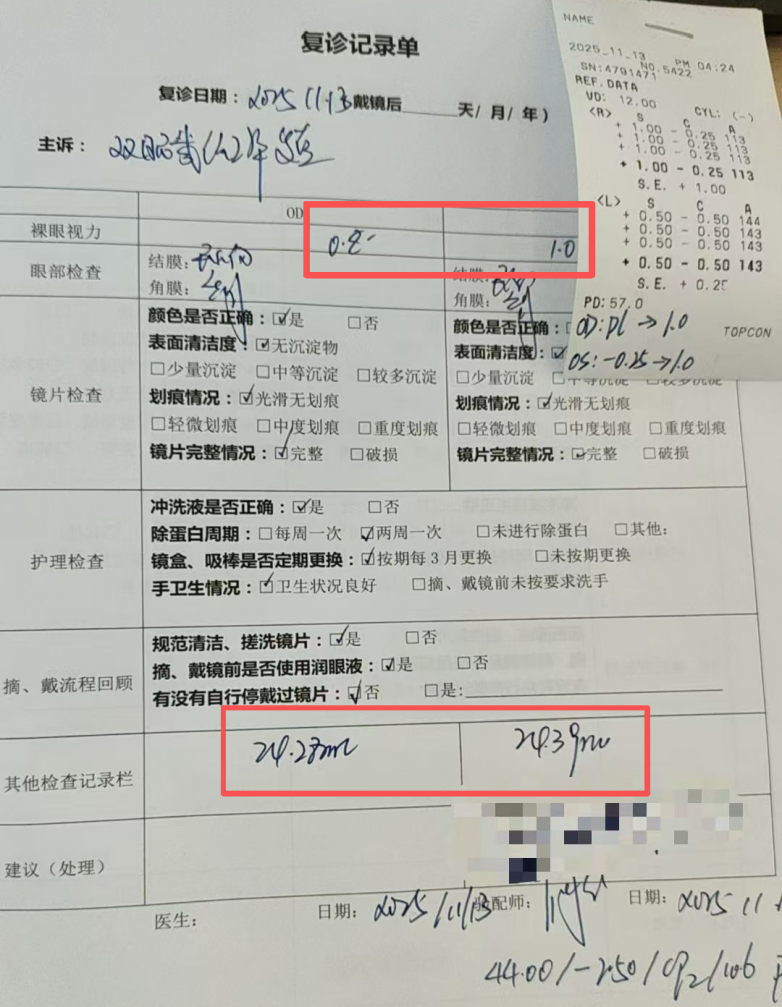 复诊记录单
复诊日期：2025 11.13 戴镜后 天/月/年）
主诉：双眼戴
OD
裸眼视力 0.8⁻ 1.0
眼部检查 结膜： 结膜：
角膜： 角膜：
镜片检查
颜色是否正确：☑是 □否 颜色是否正确：
表面清洁度：☑无沉淀物 表面清洁度：☑
□少量沉淀 □中等沉淀 □较多沉淀 □少量沉淀 □中等沉淀 □较多沉淀
划痕情况：☑光滑无划痕 划痕情况：☑光滑无划痕
□轻微划痕 □中度划痕 □重度划痕 □轻微划痕 □中度划痕 □重度划痕
镜片完整情况：☑完整 □破损 镜片完整情况：☑完整 □破损
护理检查
冲洗液是否正确：☑是 □否
除蛋白周期：□每周一次 ☑两周一次 □未进行除蛋白 □其他：
镜盒、吸棒是否定期更换：☑按期每3月更换 □未按期更换
手卫生情况：☑卫生状况良好 □摘、戴镜前未按要求洗手
摘、戴流程回顾
规范清洁、搓洗镜片：☑是 □否
摘、戴镜前是否使用润眼液：☑是 □否
有没有自行停戴过镜片：☑否 □是：
其他检查记录栏 24.28mm 24.39mm
建议（处理）
医生： 日期：2025/11/13 配师： 日期：2025 11
44.00/-2.50/
NAME
2025_11_13 PM 04:24
SN:4791471 NO.5422
REF.DATA
VD: 12.00 CYL: (-)
<R> S C A
+ 1.00 - 0.25 113
+ 1.00 - 0.25 113
+ 1.00 - 0.25 113
+ 1.00 - 0.25 113
S.E. + 1.00
<L> S C A
+ 0.50 - 0.50 144
+ 0.50 - 0.50 143
+ 0.50 - 0.50 143
+ 0.50 - 0.50 143
S.E. + 0.25
PD:57.0
OD: pl → 1.0
TOPCON
OS: -0.25 → 1.0